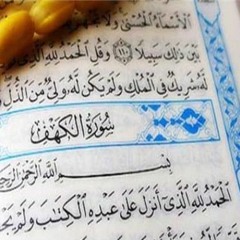 الْأَسْمَآءُ الْحُسْنَىٰ وَلَا تَجْهَرْ
بَيْنَ ذَٰلِكَ سَبِيلًا ﴿١١٠﴾ وَقُلِ الْحَمْدُ لِلَّهِ الَّذِي
لَّهُ شَرِيكٌ فِي الْمُلْكِ وَلَمْ يَكُن لَّهُ وَلِيٌّ مِّنَ الذُّلِّ
سُورَةُ الْكَهْفِ
بِسْمِ اللَّهِ الرَّحْمَٰنِ الرَّحِيمِ
الْحَمْدُ لِلَّهِ الَّذِي أَنزَلَ عَلَىٰ عَبْدِهِ الْكِتَٰبَ وَلَمْ يَجْ